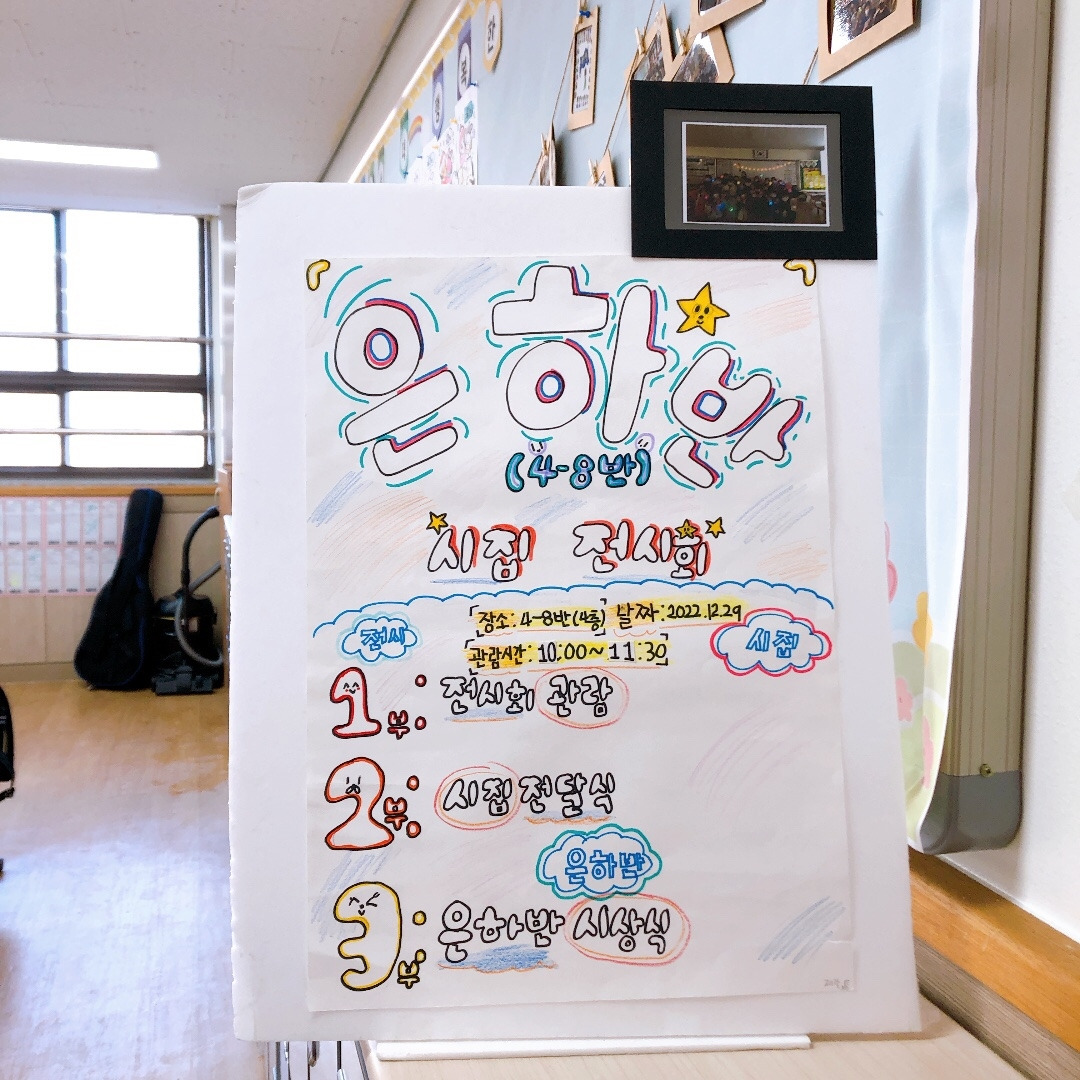 은하반
(4-8반)
시집 전시회
장소: 4-8반(4층) 날짜: 2022.12.29
전시
관람시간: 10:00~11:30
시집
1부: 전시회 관람
2부: 시집 전달식
은하반
3부: 은하반 시상식